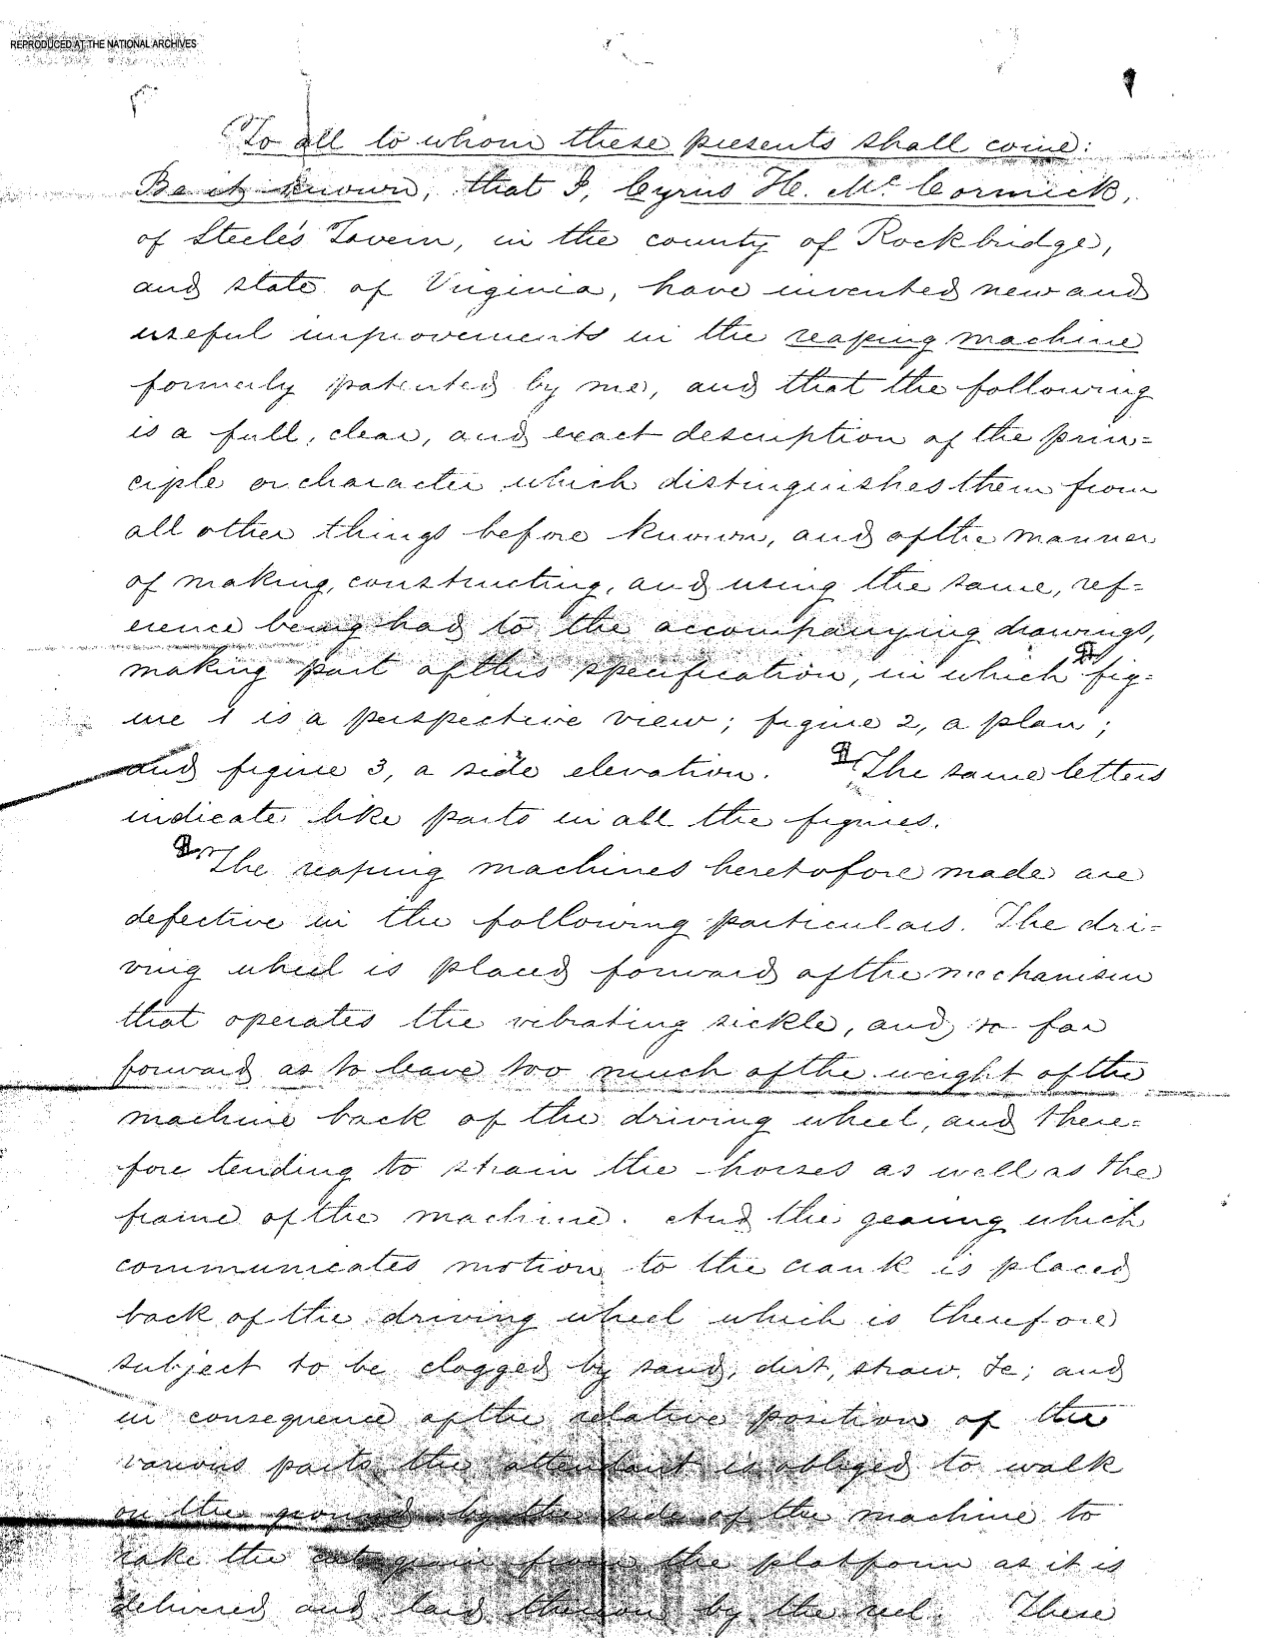 REPRODUCED AT THE NATIONAL ARCHIVES
To all to whom these presents shall come:
Be it known, that I, Cyrus H. McCormick,
of Steele's Tavern, in the county of Rockbridge,
and state of Virginia, have invented new and
useful improvements in the reaping machine
formerly patented by me, and that the following
is a full, clear, and exact description of the prin=
ciple or character which distinguishes them from
all other things before known, and of the manner
of making, constructing, and using the same, ref=
erence being had to the accompanying drawings,
making part of this specification, in which fig=
ure 1 is a perspective view; figure 2, a plan;
and figure 3, a side elevation. The same letters
indicate like parts in all the figures.
The reaping machines heretofore made are
defective in the following particulars. The dri=
ving wheel is placed forward of the mechanism
that operates the vibrating sickle, and so far
forward as to leave too much of the weight of the
machine back of the driving wheel, and there=
fore tending to strain the horses as well as the
frame of the machine. And the gearing which
communicates motion to the crank is placed
back of the driving wheel which is therefore
subject to be clogged by sand, dirt, straw, &c; and
in consequence of the relative position of the
various parts the attendant is obliged to walk
on the ground by the side of the machine to
rake the cut grain from the platform as it is
delivered and laid thereon by the reel. These